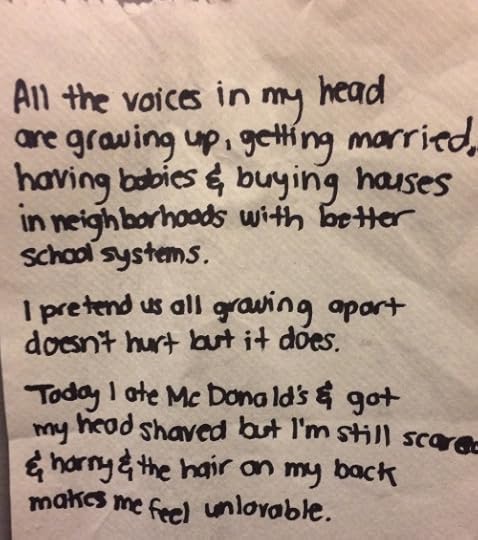 All the voices in my head
are growing up, getting married,
having babies & buying houses
in neighborhoods with better
school systems.
I pretend us all growing apart
doesn't hurt but it does.
Today I ate McDonald's & got
my head shaved but I'm still scared
& horny & the hair on my back
makes me feel unlovable.